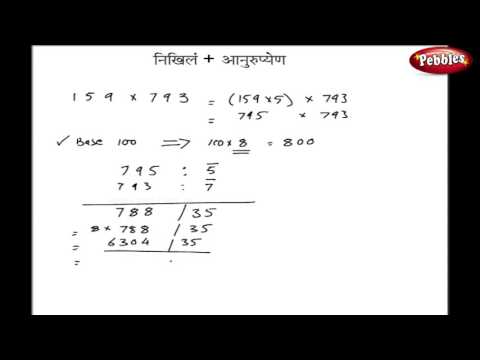 Pebbles
निखिलं + आनुरुप्येण
159 × 793 = (159×5) × 793
= 795 × 793
✓ Base 100 ⟹ 100×8 = 800
795 : 5̅
793 : 7̅
788 / 35
= 8 × 788 / 35
= 6304 / 35
= :